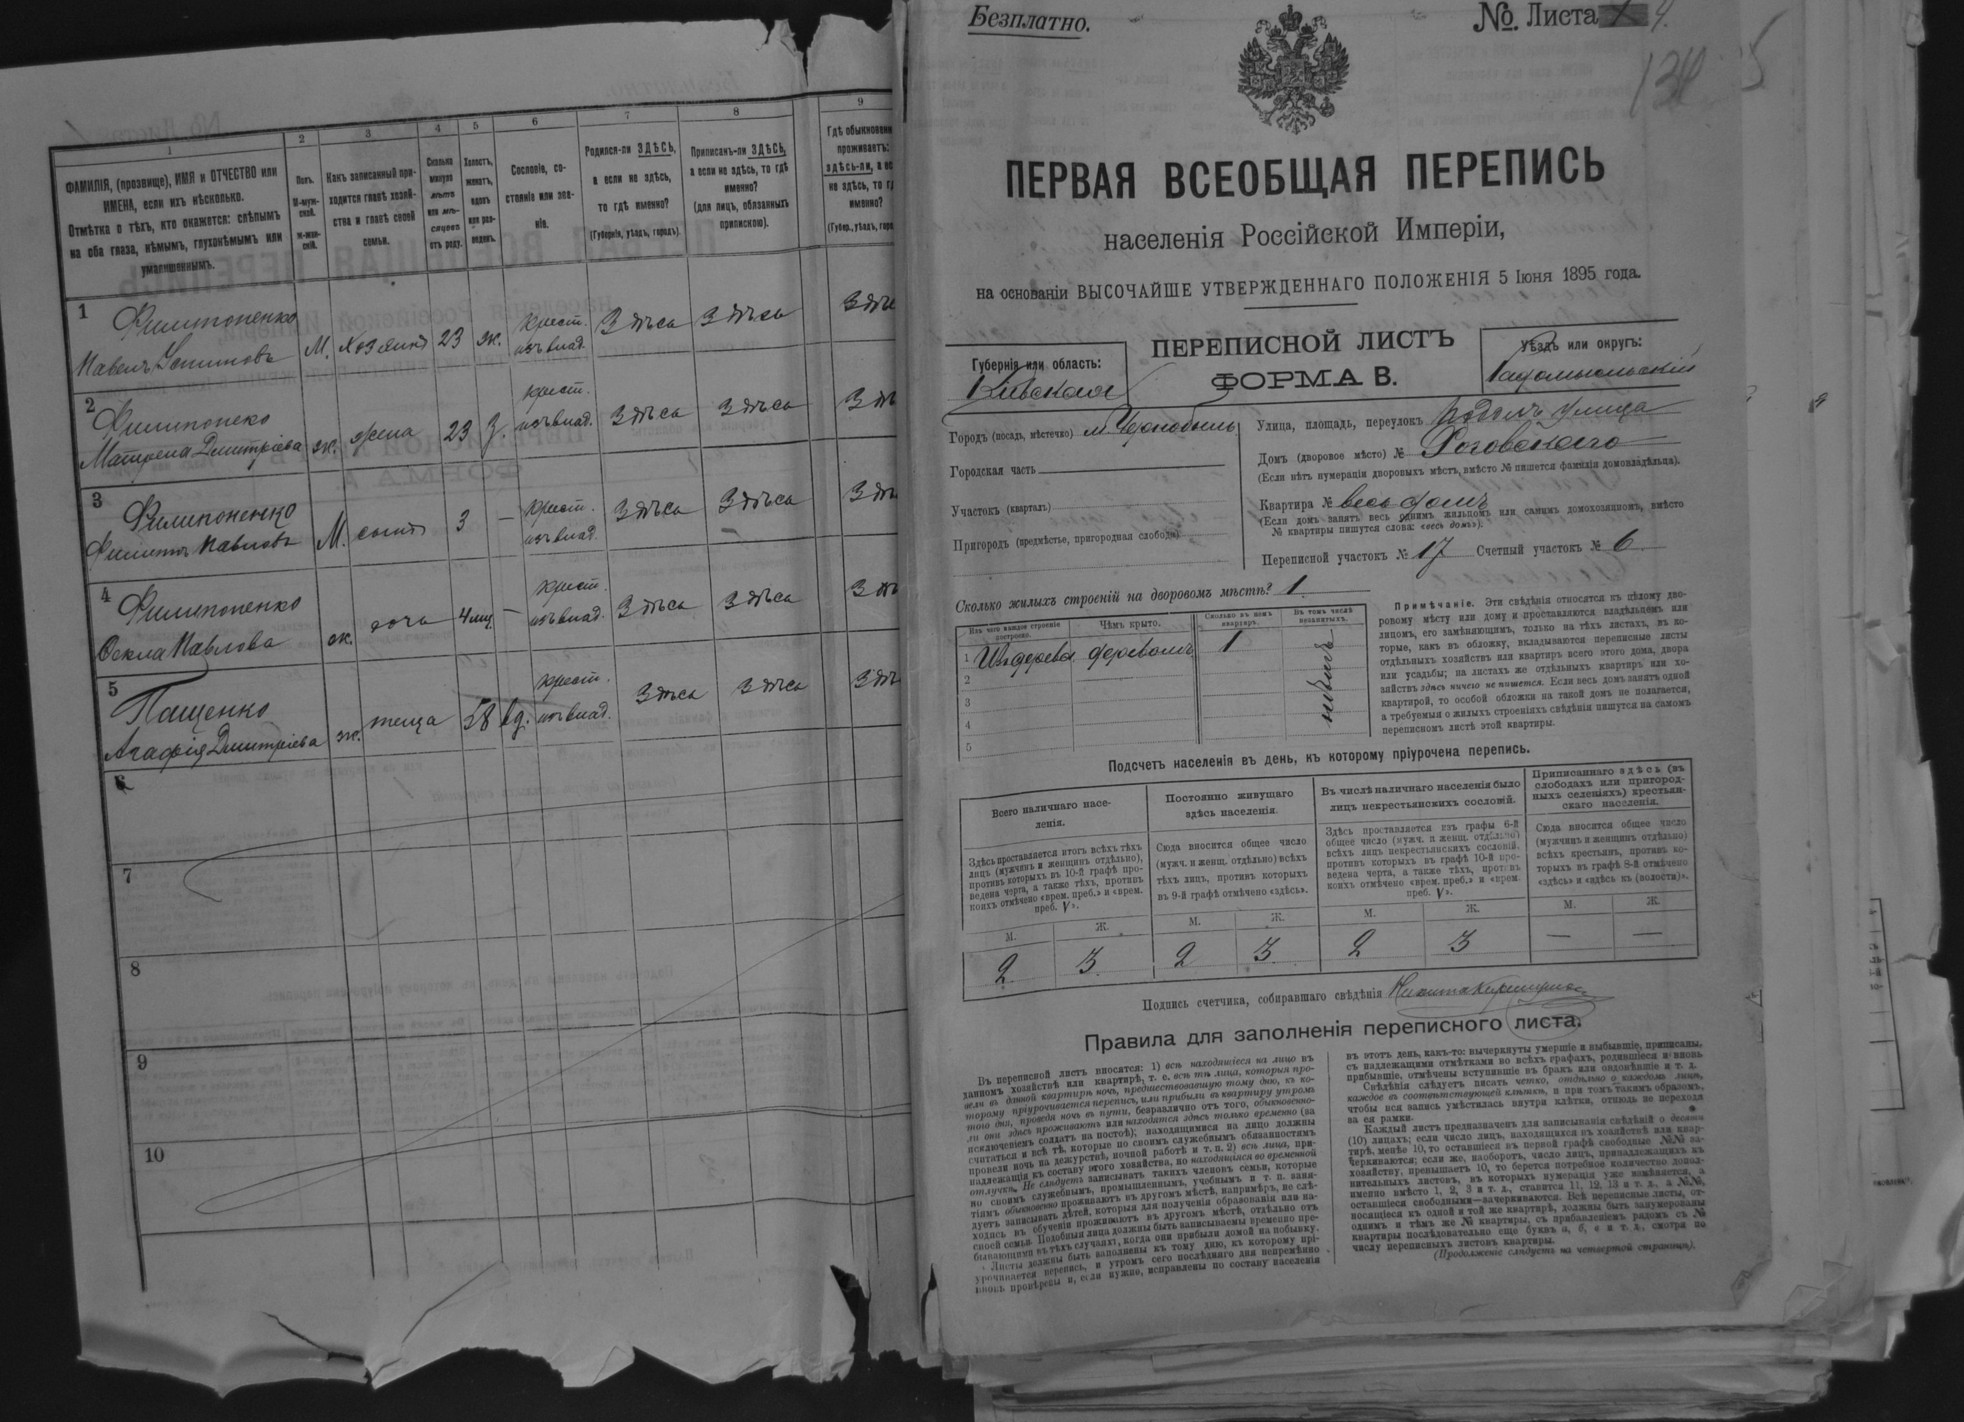 1
2
3
4
5
6
7
8
9
ФАМИЛІЯ, (прозвище), ИМЯ и ОТЧЕСТВО или
ИМЕНА, если ихъ нѣсколько.
Отмѣтка о тѣхъ, кто окажется: слѣпымъ
на оба глаза, нѣмымъ, глухонѣмымъ или
умалишеннымъ.
Полъ.
М-муж-
ской.
ж-жен-
скій.
Какъ записанный при-
ходится главѣ хозяй-
ства и главѣ своей
семьи.
Сколько
минуло
лѣтъ
или мѣ-
сяцевъ
отъ роду.
Холостъ,
женатъ,
вдовъ
или раз-
веденъ.
Сословіе, со-
стояніе или зва-
ніе.
Родился-ли ЗДѢСЬ,
а если не здѣсь,
то гдѣ именно?
(Губернія, уѣздъ, городъ).
Приписанъ-ли ЗДѢСЬ,
а если не здѣсь, то гдѣ
именно?
(для лицъ, обязанныхъ
припискою).
Гдѣ обыкновенно
проживаетъ:
здѣсь-ли, а если
не здѣсь, то гдѣ
именно?
(Губер., уѣздъ, горо
1 Филипоненко
Павелъ М. хозяинъ 23 ж. крест. Здѣсь Здѣсь Здѣ
2 Филипонеко
Матрена Дмитріева ж. жена 23 з. крест. Здѣсь Здѣсь Здѣ
3 Филипоненко
Филиппъ Павловъ М. сынъ 3 — крест. Здѣсь Здѣсь Здѣ
4 Филипоненко
Ѳекла Павлова ж. дочь 4 мц. — крест. Здѣсь Здѣсь Здѣ
5 Пащенко
Агафія Дмитріева ж. теща 58 вд. крест. Здѣсь Здѣсь Здѣ
6
7
8
9
10
Безплатно.
№ Листа 4.
ПЕРВАЯ ВСЕОБЩАЯ ПЕРЕПИСЬ
населенія Россійской Имперіи,
на основаніи ВЫСОЧАЙШЕ УТВЕРЖДЕННАГО ПОЛОЖЕНІЯ 5 Іюня 1895 года.
Губернія или область:
Кіевская
ПЕРЕПИСНОЙ ЛИСТЪ
ФОРМА В.
Уѣздъ или округъ:
Радомысльскій
Городъ (посадъ, мѣстечко) м. Чернобыль
Городская часть
Участокъ (кварталъ)
Пригородъ (предмѣстье, пригородная слобода)
Улица, площадь, переулокъ Подолъ улица
Домъ (дворовое мѣсто) № Роговского
(Если нѣтъ нумераціи дворовыхъ мѣстъ, вмѣсто № пишется фамилія домовладѣльца).
Квартира № весь домъ
(Если домъ занятъ весь однимъ жильцомъ или самимъ домохозяиномъ, вмѣсто
№ квартиры пишутся слова: «весь домъ»).
Переписной участокъ № 17 Счетный участокъ № 6.
Сколько жилыхъ строеній на дворовомъ мѣстѣ? 1.
Изъ чего каждое строеніе
построено.
Чѣмъ крыто.
Сколько въ немъ
квартиръ.
Въ томъ числѣ
незанятыхъ.
1 Изъ дерева деревомъ 1
2
3
4
5
Примѣчаніе. Эти свѣдѣнія относятся къ цѣлому дво-
ровому мѣсту или дому и проставляются владѣльцемъ или
лицомъ, его замѣняющимъ, только на тѣхъ листахъ, въ ко-
торые, какъ въ обложку, вкладываются переписные листы
отдѣльныхъ хозяйствъ или квартиръ всего этого дома, двора
или усадьбы; на листахъ же отдѣльныхъ квартиръ или хо-
зяйствъ здѣсь ничего не пишется. Если весь домъ занятъ одной
квартирой, то особой обложки на такой домъ не полагается,
а требуемыя о жилыхъ строеніяхъ свѣдѣнія пишутся на самомъ
переписномъ листѣ этой квартиры.
Подсчетъ населенія въ день, къ которому пріурочена перепись.
Всего наличнаго насе-
ленія.
Постоянно живущаго
здѣсь населенія.
Въ числѣ наличнаго населенія было
лицъ некрестьянскихъ сословій.
Приписаннаго здѣсь (въ
слободахъ или пригород-
ныхъ селеніяхъ) крестьян-
скаго населенія.
Здѣсь проставляется итогъ всѣхъ тѣхъ
лицъ (мужчинъ и женщинъ отдѣльно),
противъ которыхъ въ 10-й графѣ про-
ведена черта, а также тѣхъ, противъ
коихъ отмѣчено «врем. преб.» и «врем.
преб. V».
Сюда вносится общее число
(мужч. и женщ. отдѣльно) всѣхъ
тѣхъ лицъ, противъ которыхъ
въ 9-й графѣ отмѣчено «здѣсь».
Здѣсь проставляется изъ графы 6-й
общее число (мужч. и женщ. отдѣльно)
всѣхъ лицъ некрестьянскихъ сословій,
противъ которыхъ въ графѣ 10-й про-
ведена черта, а также тѣхъ, противъ
коихъ отмѣчено «врем. преб.» и «врем.
преб. V».
Сюда вносится общее число
(мужчинъ и женщинъ отдѣльно)
всѣхъ крестьянъ, противъ ко-
торыхъ въ графѣ 8-й отмѣчено
«здѣсь» и «здѣсь къ (волости)».
М. Ж. М. Ж. М. Ж. М. Ж.
2 3. 2 3. 2 3 — —
Подпись счетчика, собиравшаго свѣдѣнія Никита
Правила для заполненія переписного листа.
Въ переписной листъ вносятся: 1) всѣ находящіеся на лицо въ
данномъ хозяйствѣ или квартирѣ, т. е. всѣ тѣ лица, которыя про-
вели въ данной квартирѣ ночь, предшествовавшую тому дню, къ ко-
торому пріурочивается перепись, или прибыли въ квартиру утромъ
того дня, проведя ночь въ пути, безразлично отъ того, обыкновенно-
ли они здѣсь проживаютъ или находятся здѣсь только временно (за
исключеніемъ солдатъ на постоѣ); находящимися на лицо должны
считаться и всѣ тѣ, которые по своимъ служебнымъ обязанностямъ
провели ночь на дежурствѣ, ночной работѣ и т. п. 2) всѣ лица, при-
надлежащія къ составу этого хозяйства, но находящіяся во временной
отлучкѣ. Не слѣдуетъ записывать такихъ членовъ семьи, которые
по своимъ служебнымъ, промышленнымъ, учебнымъ и т. п. заня-
тіямъ обыкновенно проживаютъ въ другомъ мѣстѣ, напримѣръ, не слѣ-
дуетъ записывать дѣтей, которыя для полученія образованія или на-
ходясь въ обученіи проживаютъ въ другомъ мѣстѣ, отдѣльно отъ
своей семьи. Подобныя лица должны быть записываемы временно пре-
бывающими въ тѣхъ случаяхъ, когда они прибыли домой на побывку.
Листы должны быть заполнены къ тому дню, къ которому прі-
урочивается перепись, и утромъ сего послѣдняго дня непремѣнно
вновь провѣрены и, если нужно, исправлены по составу населенія
въ этотъ день, какъ-то: вычеркнуты умершіе и выбывшіе, приписаны,
съ надлежащими отмѣтками во всѣхъ графахъ, родившіеся и вновь
прибывшіе, отмѣчены вступившіе въ бракъ или овдовѣвшіе и т. д.
Свѣдѣнія слѣдуетъ писать четко, отдѣльно о каждомъ лицѣ,
каждое въ соотвѣтствующей клѣткѣ, и при томъ такимъ образомъ,
чтобы вся запись умѣстилась внутри клѣтки, отнюдь не переходя
за ея рамки.
Каждый листъ предназначенъ для записыванія свѣдѣній о десяти
(10) лицахъ; если число лицъ, находящихся въ хозяйствѣ или квар-
тирѣ, менѣе 10, то оставшіеся въ первой графѣ свободные №№ за-
черкиваются; если же, наоборотъ, число лицъ, принадлежащихъ къ
хозяйству, превышаетъ 10, то берется потребное количество допол-
нительныхъ листовъ, въ которыхъ нумерація уже измѣняется, а
именно вмѣсто 1, 2, 3 и т. д., ставится 11, 12, 13 и т. д., а №№,
оставшіеся свободными—зачеркиваются. Всѣ переписные листы, от-
носящіеся къ одной и той же квартирѣ, должны быть занумерованы
однимъ и тѣмъ же № квартиры, съ прибавленіемъ рядомъ съ №
квартиры послѣдовательно еще буквъ а, б, в и т. д., смотря по
числу переписныхъ листовъ квартиры.
(Продолженіе слѣдуетъ на четвертой страницѣ).